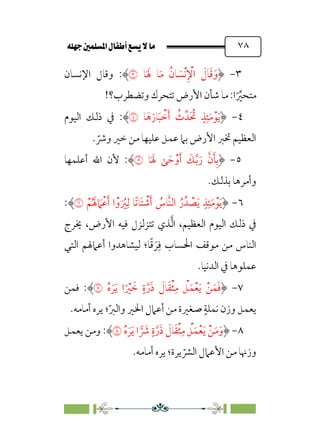 ٧٨
ما لا يسع أطفال المسلمين جهله
٣- ﴿وَقَالَ الْإِنْسَانُ مَا لَهَا﴾: وقال الإنسان
متحيِّرًا: ما شأن الأرض تتحرك وتضطرب؟!
٤- ﴿يَوْمَئِذٍ تُحَدِّثُ أَخْبَارَهَا﴾: في ذلك اليوم
العظيم تخبر الأرض بما عمل عليها من خير وشرّ.
٥- ﴿بِأَنَّ رَبَّكَ أَوْحَىٰ لَهَا﴾: لأن الله أعلمها
وأمرها بذلك.
٦- ﴿يَوْمَئِذٍ يَصْدُرُ النَّاسُ أَشْتَاتًا لِيُرَوْا أَعْمَالَهُمْ﴾:
في ذلك اليوم العظيم، الَّذي تتزلزل فيه الأرض، يخرج
الناس من موقف الحساب فِرَقًا؛ ليشاهدوا أعمالهم التي
عملوها في الدنيا.
٧- ﴿فَمَنْ يَعْمَلْ مِثْقَالَ ذَرَّةٍ خَيْرًا يَرَهُ﴾: فمن
يعمل وزن نملةٍ صغيرة من أعمال الخير والبرّ؛ يره أمامه.
٨- ﴿وَمَنْ يَعْمَلْ مِثْقَالَ ذَرَّةٍ شَرًّا يَرَهُ﴾: ومن يعمل
وزنها من الأعمال الشرّيرة؛ يره أمامه.